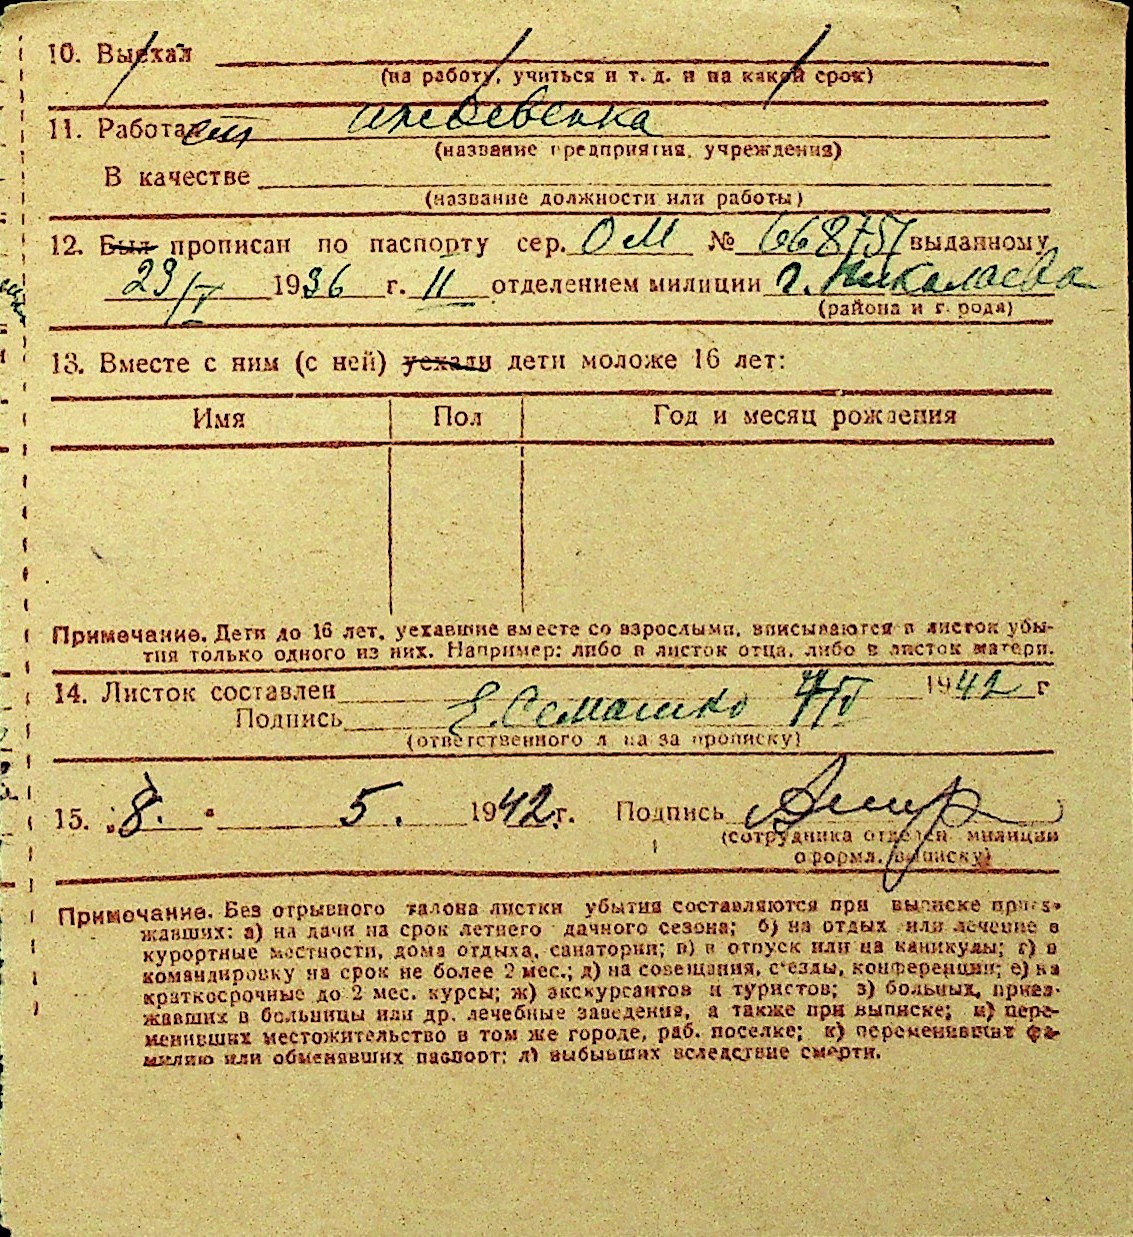 10. Выехал
(на работу, учиться и т. д. и на какой срок)
11. Работает иждевенка
(название предприятия, учреждения)
В качестве
(название должности или работы)
12. Был прописан по паспорту сер. ОМ № 668757 выданному
23/V 1936 г. II отделением милиции г. Николаева
(района и города)
13. Вместе с ним (с ней) уехали дети моложе 16 лет:
Имя Пол Год и месяц рождения
Примечание. Дети до 16 лет, уехавшие вместе со взрослыми, вписываются в листок убы-
тия только одного из них. Например: либо в листок отца, либо в листок матери.
14. Листок составлен 7/V 1942 г
Подпись Е. Семашко
(ответственного лица за прописку)
15. „8. “ 5. 1942. г. Подпись
(сотрудника отделен. милиции
оформл. выписку)
Примечание. Без отрывного талона листки убытия составляются при выписке приез-
жавших: а) на дачи на срок летнего дачного сезона; б) на отдых или лечение в
курортные местности, дома отдыха, санатории; в) в отпуск или на каникулы; г) в
командировку на срок не более 2 мес.; д) на совещания, с'езды, конференции; е) на
краткосрочные до 2 мес. курсы; ж) экскурсантов и туристов; з) больных, приез-
жавших в больницы или др. лечебные заведения, а также при выписке; и) пере-
менивших местожительство в том же городе, раб. поселке; к) переменивших фа-
милию или обменявших паспорт; л) выбывших вследствие смерти.